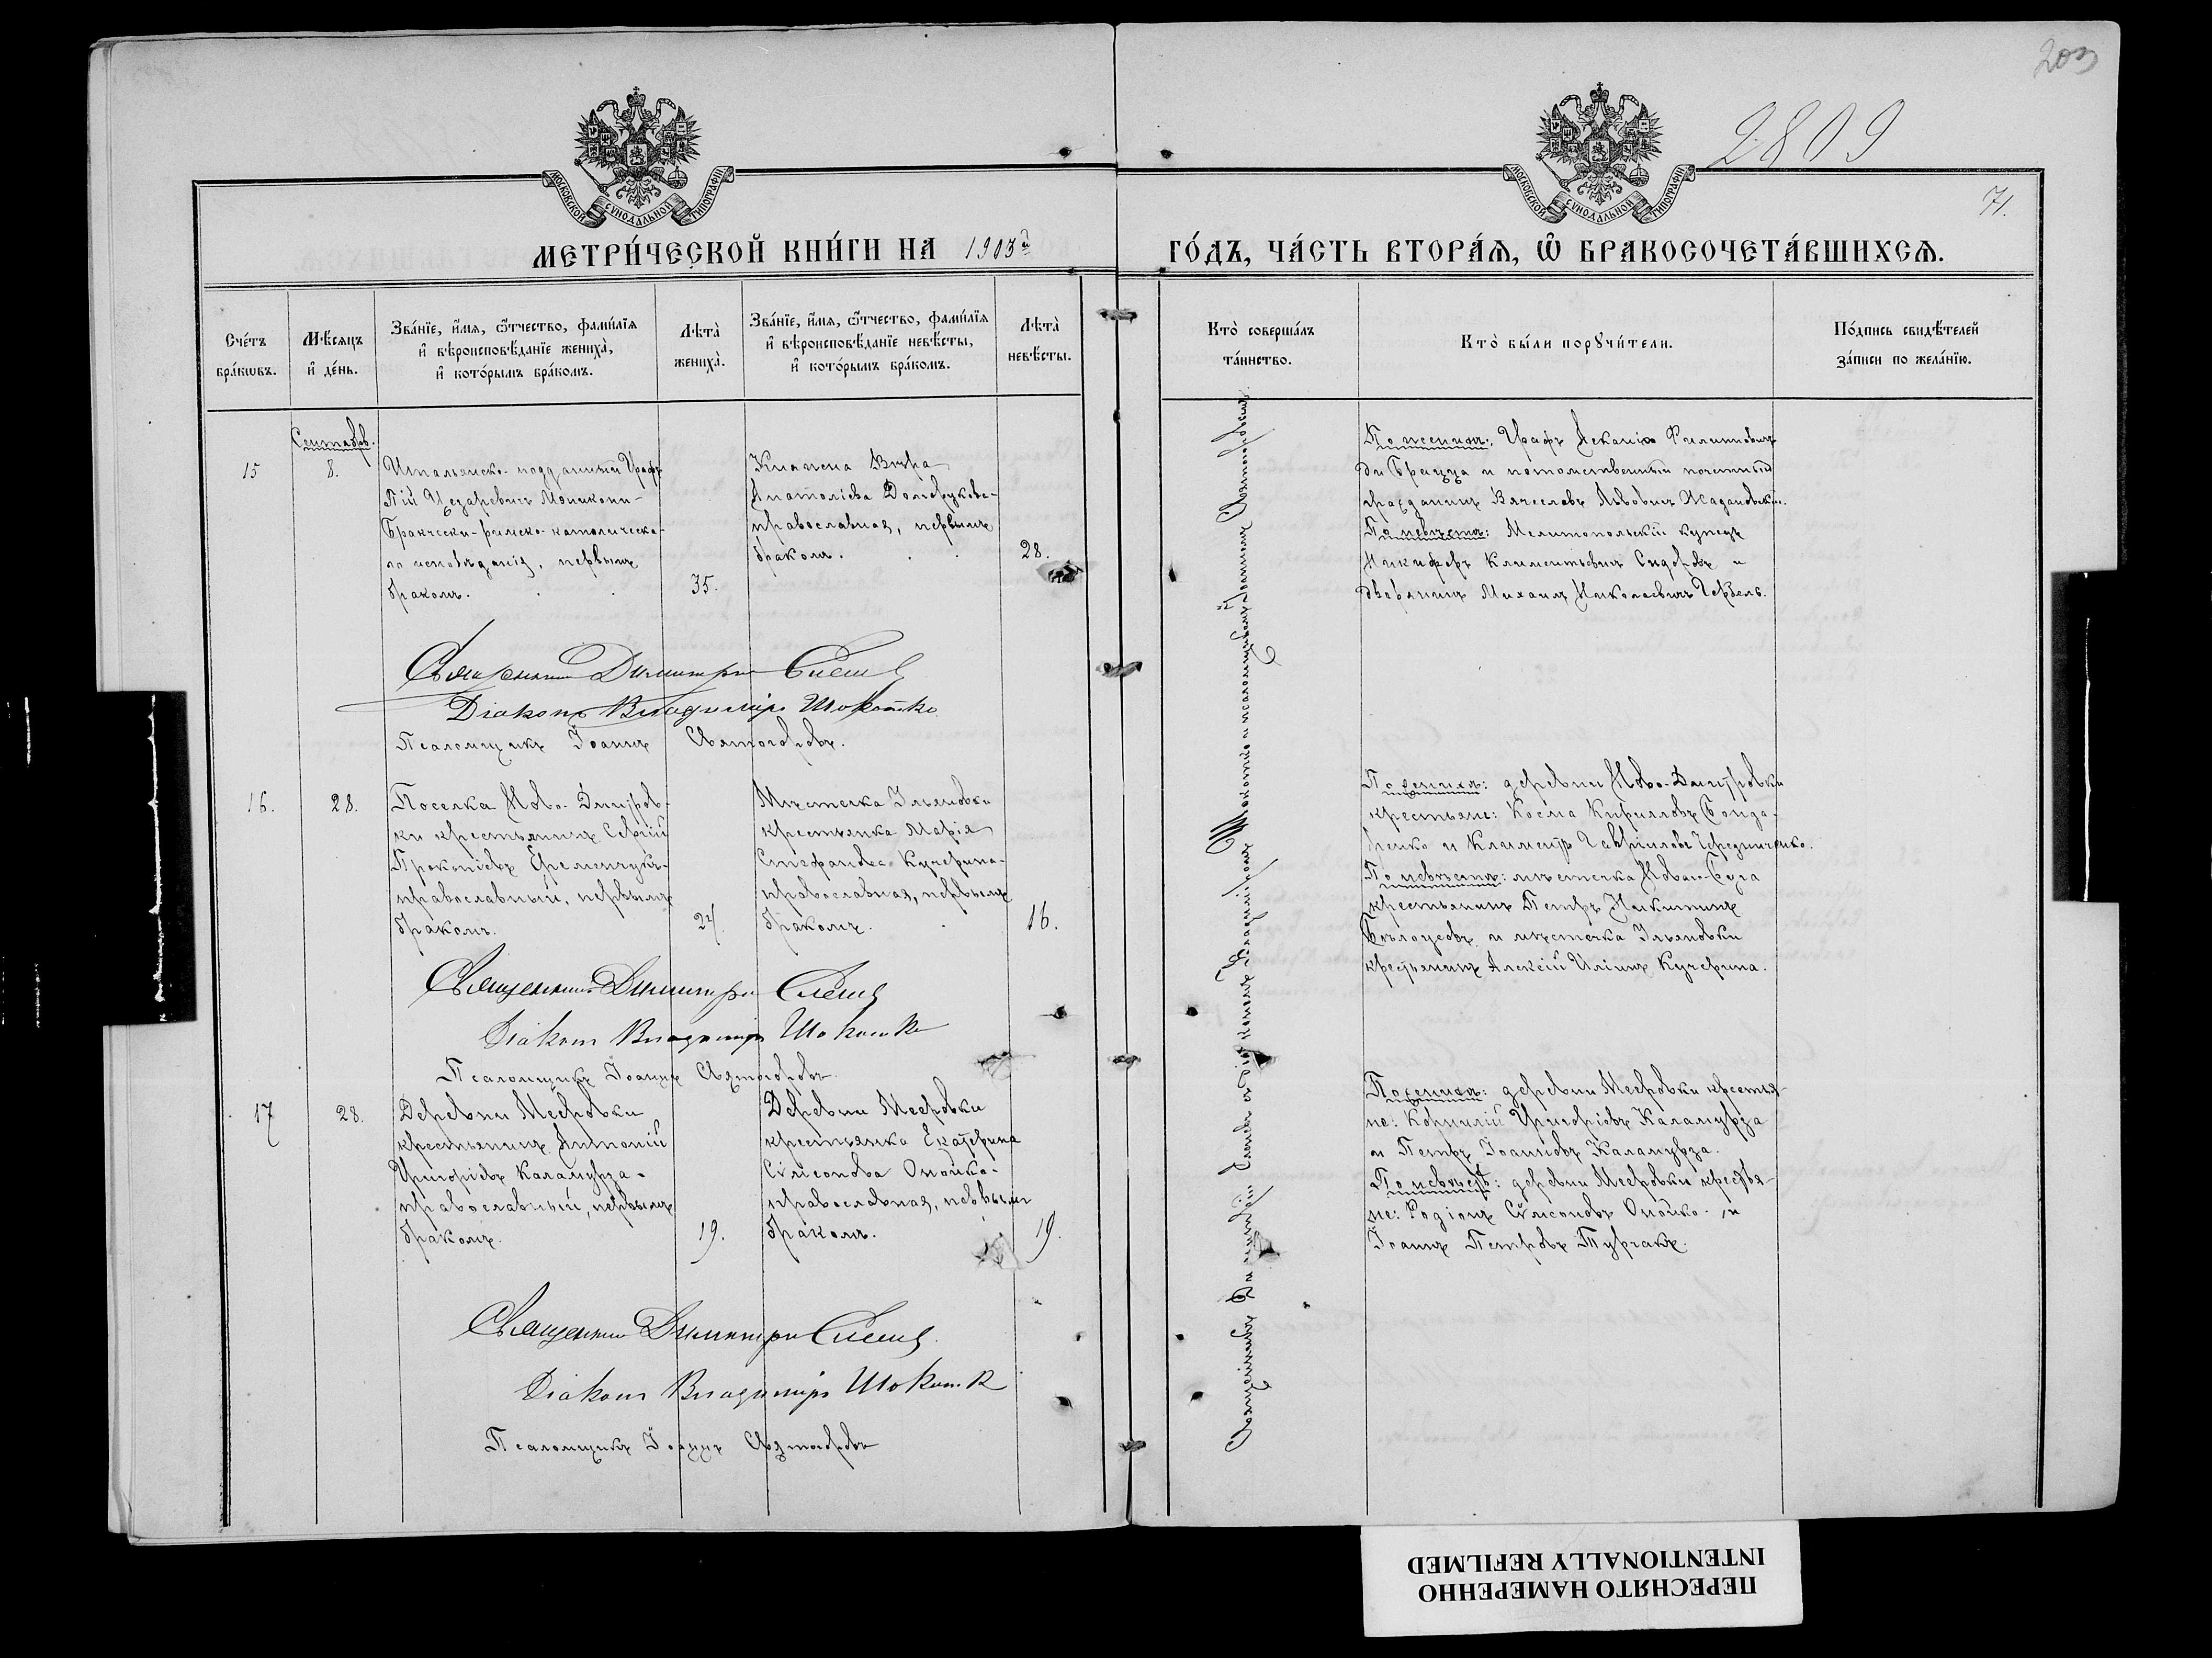 203
2809
71.
МОСКОВСКОЙ СѴНОДАЛЬНОЙ ТИПОГРАФІИ
МОСКОВСКОЙ СѴНОДАЛЬНОЙ ТИПОГРАФІИ
МЕТРИ́ЧЕСКОЙ КНИ́ГИ НА 1903й
ГО́ДЪ, ЧА́СТЬ ВТОРА́Ѧ, Ѽ БРАКОСОЧЕТА́ВШИХСѦ.
Сче́тъ
бра́кѡвъ.
Мѣ́сяцъ
и҆ де́нь.
Зва́нїе, и҆́мѧ, ѻ҆́тчество, фамил́їѧ
и҆ вѣроисповѣ́данїе жениха̀,
и҆ кото́рымъ бра́комъ.
Лѣта̀
жениха̀.
Зва́нїе, и҆́мѧ, ѻ҆́тчество, фамил́їѧ
и҆ вѣроисповѣ́данїе невѣ́сты,
и҆ кото́рымъ бра́комъ.
Лѣта̀
невѣ́сты.
Кто̀ соверша́лъ
та́инство.
Кто̀ бы́ли порꙋчи́тели.
По́дпись свидѣ́телей
за́писи по жела́нїю.
Сентябрь.
15
8.
Итальянско-подданный Графъ
Пій Цезаревичъ Моникони-
Бракчески-римско-католическа-
го исповѣданія, первымъ
бракомъ.
35.
Княжна Вѣра
Анатоліева
православная, первымъ
бракомъ.
28.
По женихѣ: Графъ Асканіо Филиповичъ
ди Брацца и потомственный почетный
гражданинъ Вячеславъ Львовичъ Жадановскій.
По невѣстѣ: Мелитопольскій купецъ
Никифоръ Климентьевичъ Сидоровъ и
дворянинъ Михаилъ Николаевичъ Гербель.
Священникъ Димитрій
Діаконъ Владиміръ Шокотко
Псаломщикъ Іоаннъ Святогоровъ.
16.
28.
Поселка Ново-Дмитров-
ки крестьянинъ Сергій
Прокопіевъ Еременчукъ-
православный, первымъ
бракомъ.
24.
Мѣстечка Ильяновки
крестьянка Марія
Стефанова Кучерина-
православная, первымъ
бракомъ.
16.
По женихѣ: деревни Ново-Дмитровки
крестьяне: Косма Кирилловъ Бонда-
ренко и Климентъ Гавриловъ Чередниченко.
По невѣстѣ: мѣстечка Новаго-Буга
крестьянинъ Петръ Никитинъ
Бѣлоусовъ и мѣстечка Ильяновки
крестьянинъ Алексій Иліинъ Кучерина.
Священникъ Димитрій
Діаконъ Владиміръ Шокотко
Псаломщикъ Іоаннъ Святогоровъ
17
28.
Деревни Мееровки
крестьянинъ Антоній
Григоріевъ Каламурза-
православный, первымъ
бракомъ.
19.
Деревни Мееровки
крестьянка Екатерина
Сѵмеонова Опойко-
православная, первымъ
бракомъ.
19.
По женихѣ: деревни Мееровки крестья-
не: Корнилій Григоріевъ Каламурза
и Петръ Іоанновъ Каламурза.
По невѣстѣ: деревни Мееровки крестья-
не: Родіонъ Сѵмеоновъ Опойко и
Іоаннъ Петровъ Турчакъ.
Священникъ Димитрій
Діаконъ Владиміръ Шокотко
Псаломщикъ Іоаннъ Святогоровъ
Священникъ Димитрій съ діакономъ Владиміромъ Шокотко и псаломщикомъ Іоанномъ Святогоровымъ.
ПЕРЕСНЯТО НАМЕРЕННО
INTENTIONALLY REFILMED